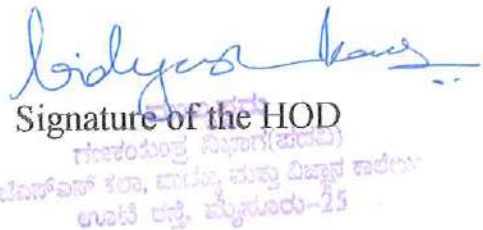 Signature of the HOD
ಮುಖ್ಯಸ್ಥರು
ಗಣಕಯಂತ್ರ ವಿಭಾಗ(ಪದವಿ)
ಜೆಎಸ್ಎಸ್ ಕಲಾ, ವಾಣಿಜ್ಯ ಮತ್ತು ವಿಜ್ಞಾನ ಕಾಲೇಜು
ಊಟಿ ರಸ್ತೆ, ಮೈಸೂರು-25